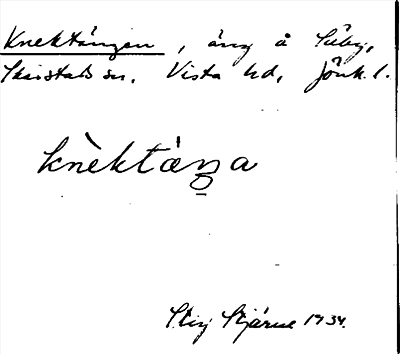 Knektängen, äng å Säby,
Skärstads sn. Vista hd, Jönk. l.
knèktàŋa
Stig Stjärne 1934.